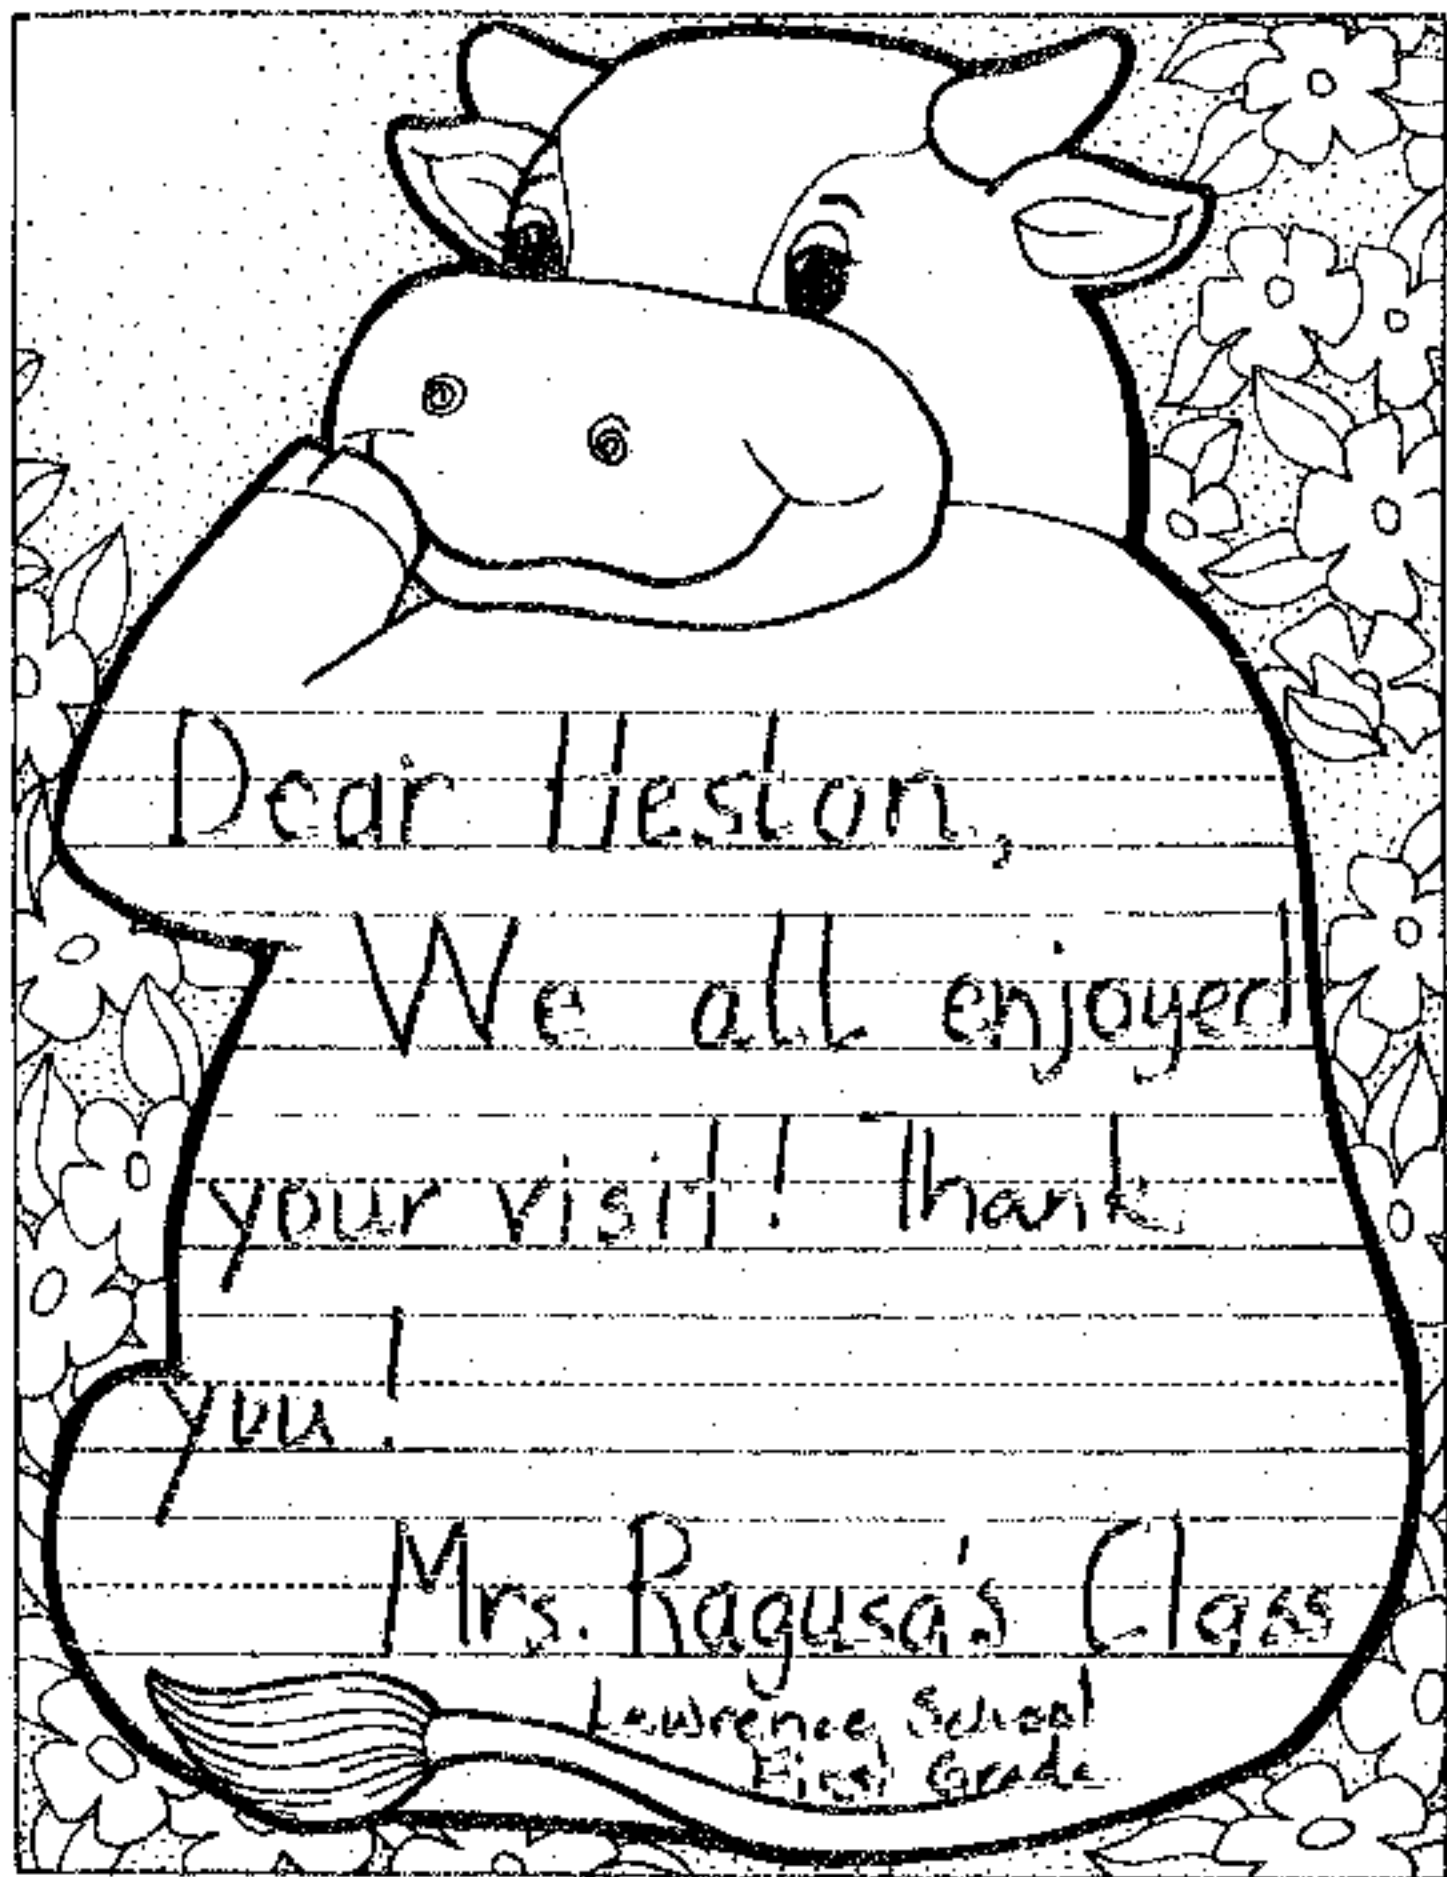 Dear Heston,
We all enjoyed
your visit! Thank
you!
Mrs. Ragusa's Class
Lawrence School
First Grade